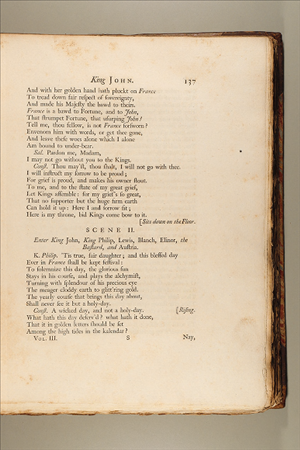 King JOHN. 137
And with her golden hand hath pluckt on France
To tread down fair reſpect of ſovereignty,
And made his Majeſty the bawd to theirs.
France is a bawd to Fortune, and to John,
That ſtrumpet Fortune, that uſurping John!
Tell me, thou fellow, is not France forſworn?
Envenom him with words, or get thee gone,
And leave theſe woes alone which I alone
Am bound to under-bear.
Sal. Pardon me, Madam,
I may not go without you to the Kings.
Conſt. Thou may'ſt, thou ſhalt, I will not go with thee.
I will inſtruct my ſorrow to be proud;
For grief is proud, and makes his owner ſtout.
To me, and to the ſtate of my great grief,
Let Kings aſſemble: for my grief's ſo great,
That no ſupporter but the huge firm earth
Can hold it up: Here I and ſorrow ſit;
Here is my throne, bid Kings come bow to it.
[Sits down on the Floor.
SCENE II.
Enter King John, King Philip, Lewis, Blanch, Elinor, the
Baſtard, and Auſtria.
K. Philip. 'Tis true, fair daughter; and this bleſſed day
Ever in France ſhall be kept feſtival:
To ſolemnize this day, the glorious ſun
Stays in his courſe, and plays the alchymiſt,
Turning with ſplendour of his precious eye
The meager cloddy earth to glitt'ring gold.
The yearly courſe that brings this day about,
Shall never ſee it but a holy-day.
Conſt. A wicked day, and not a holy-day. [Riſing.
What hath this day deſerv'd? what hath it done,
That it in golden letters ſhould be ſet
Among the high tides in the kalendar?
VOL. III. S Nay,